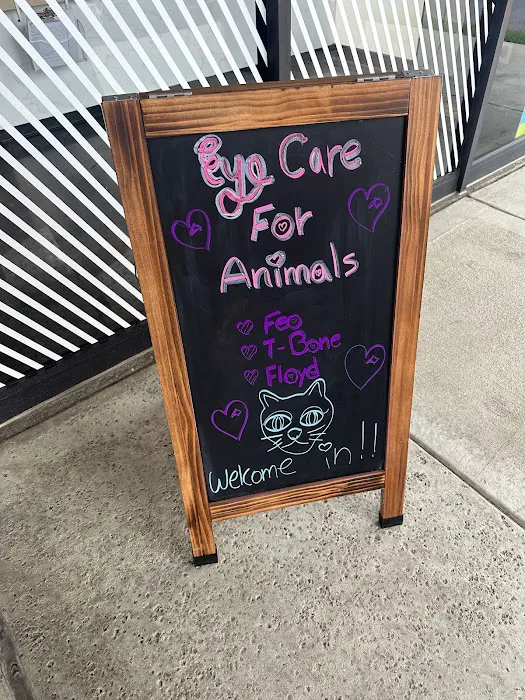 Eye Care
For
Animals
Feo
T-Bone
Floyd
Welcome in!!